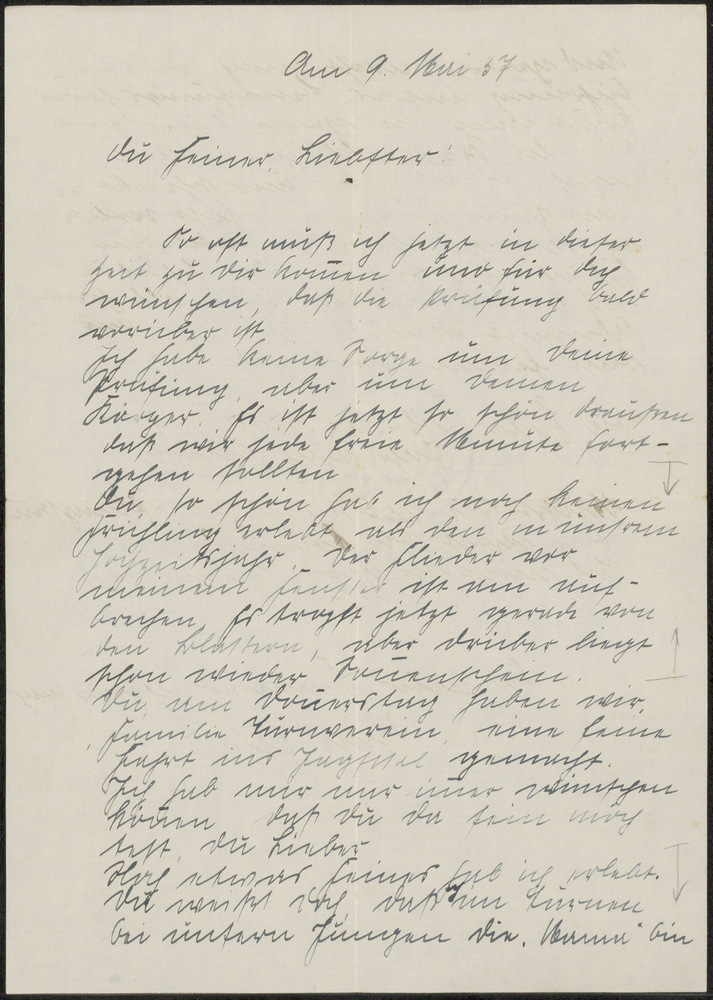 Am 9. Mai 37
Du feiner, Liebster!
So oft muß ich jetzt in dieser
Zeit zu Dir kommen und für Dich
wünschen, daß die Prüfung bald
vorüber ist.
Ich habe keine Sorge um Deine
Prüfung, aber um Deinen
Körper. Es ist jetzt so schön draußen
daß wir jede freie Minute fort-
gehen sollten
Du, so schön hab ich noch keinen
Frühling erlebt, als den in unsrem
Hochzeitsjahr. Der Flieder vor
meinem Fenster ist am auf-
brechen. Es tropft jetzt gerade von
den Blättern, aber drüber liegt
schon wieder Sonnenschein.
Du, am Donnerstag haben wir,
Familie Turnverein, eine feine
Fahrt ins Jagsttal gemacht.
Ich hab nur nur immer wünschen
können, daß Du da sein möch
test, Du Lieber
Noch etwas Feines hab ich erlebt.
Du weißt doch, daß im Turnen
bei unsern Jungen die „Mama" bin